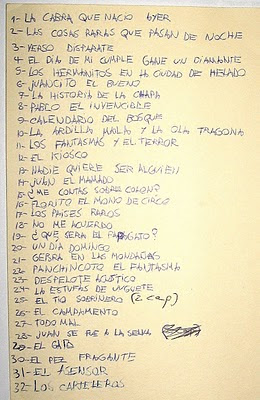 1- LA CABRA QUE NACIO AYER
2- LAS COSAS RARAS QUE PASAN DE NOCHE
3- VERSO DISPARATE
4- EL DIA DE MI CUMPLE GANE UN DIAMANTE
5- LOS HERMANITOS EN LA CIUDAD DE HELADO
6- JUANCITO EL BUENO
7- LA HISTORIA DE LA CHAPA
8- PABLO EL INVENCIBLE
9- CALENDARIO DEL BOSQUE
10- LA ARDILLA MALA Y LA OLA TRAGONA
11- LOS FANTASMAS Y EL TERROR
12- EL KIOSCO
13- NADIE QUIERE SER ALGUIEN
14- JUAN EL MAMADO
15- ¿ME CONTAS SOBRE COLON?
16- FLORITO EL MONO DE CIRCO
17- LOS PAISES RAROS
18- NO ME ACUERDO
19- ¿QUE SERA EL GATO?
20- UN DIA DOMINGO
21- GEBRA EN LAS MONTAÑAS
22- PANCHINCOTO EL FANTASMA
23- DESPELOTE ACUATICO
24- LA ESTUFAS DE JUGUETE
25- EL TIO SOBRINERO (2 cap)
26- EL CAMPAMENTO
27- TODO MAL
28- JUAN SE FUE A LA SELVA
29- EL GATO
30- EL PEZ FRAGANTE
31- EL ASENSOR
32- LOS CARTELEROS